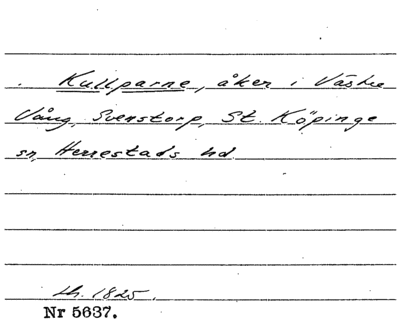 . Kullparne, åker i Västre
Vång, Svenstorp, St. Köpinge
sn, Herrestads hd
Lh. 1825.
Nr 5637.